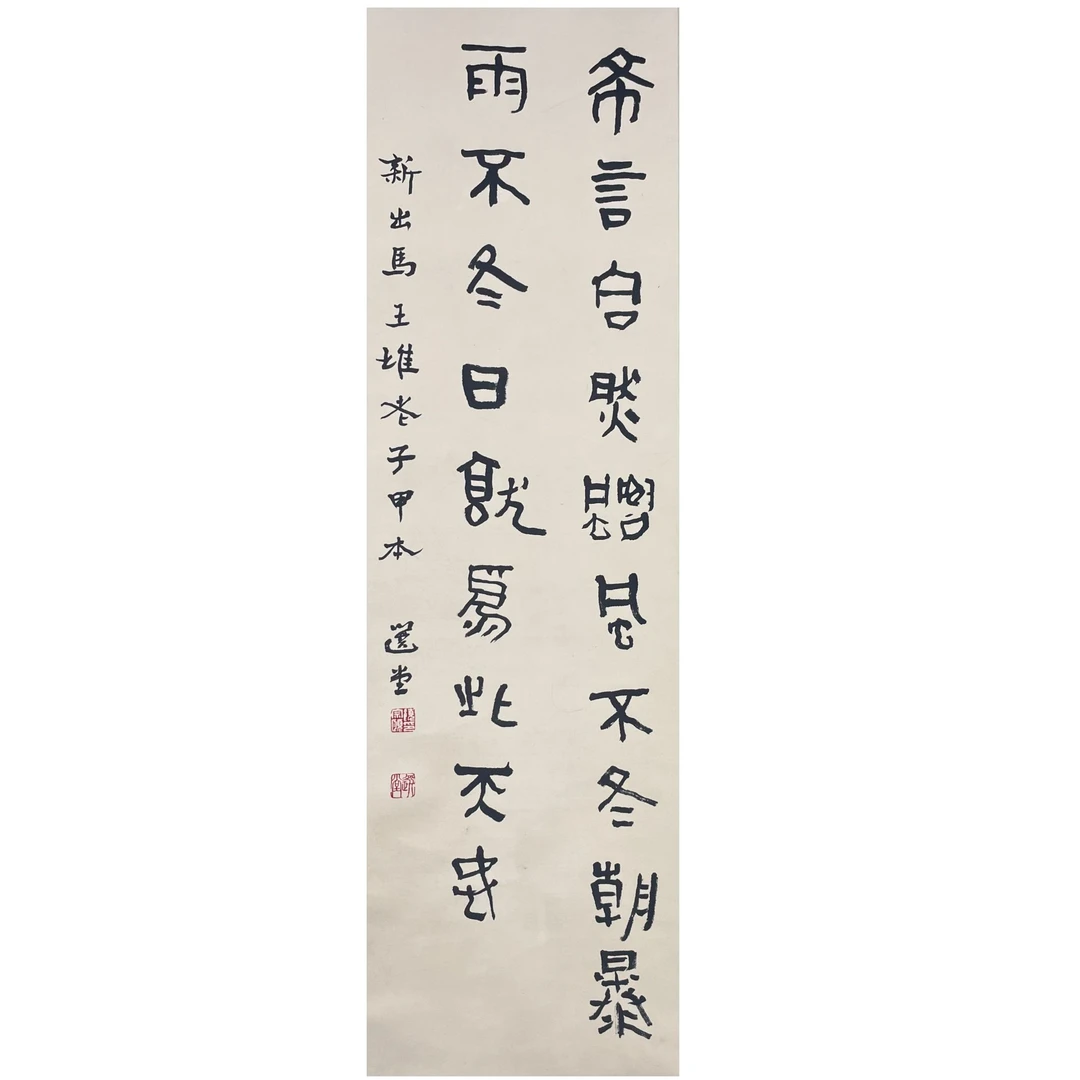 希言自然飄風不冬朝暴
雨不冬日孰為此天地
新出馬王堆老子甲本 選堂
選堂